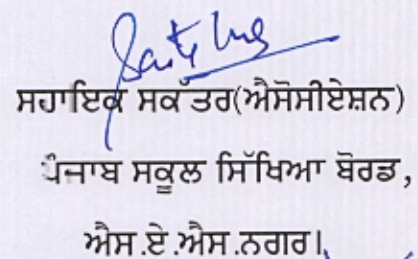 ਸਹਾਇਕ ਸਕੱਤਰ(ਐਸੋਸੀਏਸ਼ਨ)
ਪੰਜਾਬ ਸਕੂਲ ਸਿੱਖਿਆ ਬੋਰਡ,
ਐਸ.ਏ.ਐਸ.ਨਗਰ।